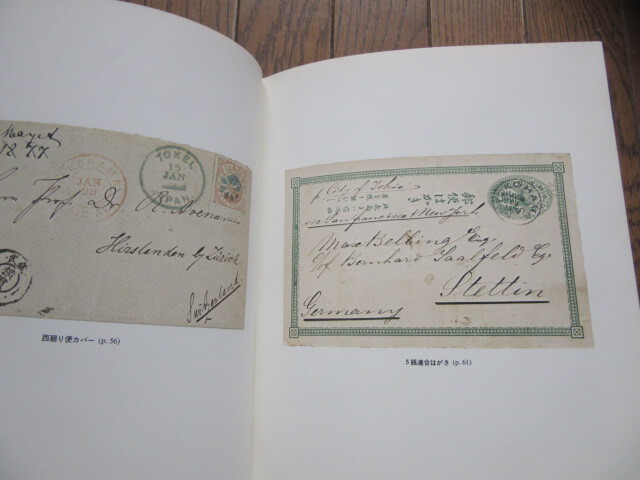 Mayet
1877
YOKOHAMA
JAN
TOKEI
15
JAN
JAPAN
Herrn Prof. Dr. R. Avenarius
Hirslanden by Zürich
Switzerland
西廻り便カバー (p. 56)
郵便はがき
YOKOHAMA
p City of Tokio
via San Francisco & New York
Max Belling Esq.
c/o Bernhard Saalfeld Esq.
Stettin
Germany
5銭連合はがき (p. 61)